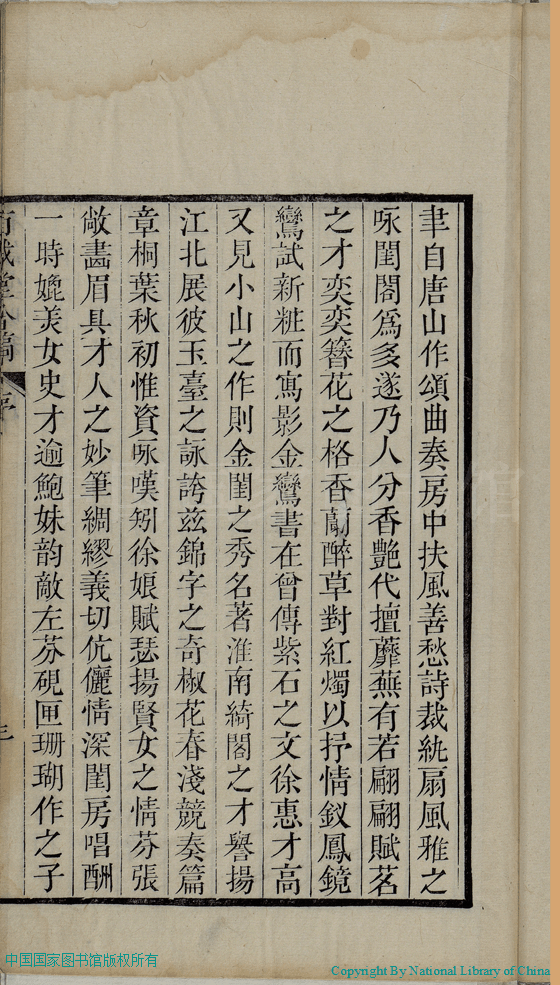 聿自唐山作頌曲奏房中扶風善愁詩裁紈扇風雅之
咏閨閣為多遂乃人分香艷代擅蘼蕪有若翩翩賦茗
之才奕奕簪花之格香蘭醉草對紅燭以抒情釵鳳鏡
鸞試新粧而寫影金鸞書在曾傳紫石之文徐惠才高
又見小山之作則金閨之秀名著淮南綺閣之才譽揚
江北展彼玉臺之詠誇茲錦字之奇椒花春淺競奏篇
章桐葉秋初惟資咏嘆矧徐娘賦瑟揚賢女之情芬張
敞畵眉具才人之妙筆綢繆義切伉儷情深閨房唱酬
一時媲美女史才逾鮑妹韵敵左芬硯匣珊瑚作之子
序
三
中国国家图书馆版权所有
Copyright By National Library of China